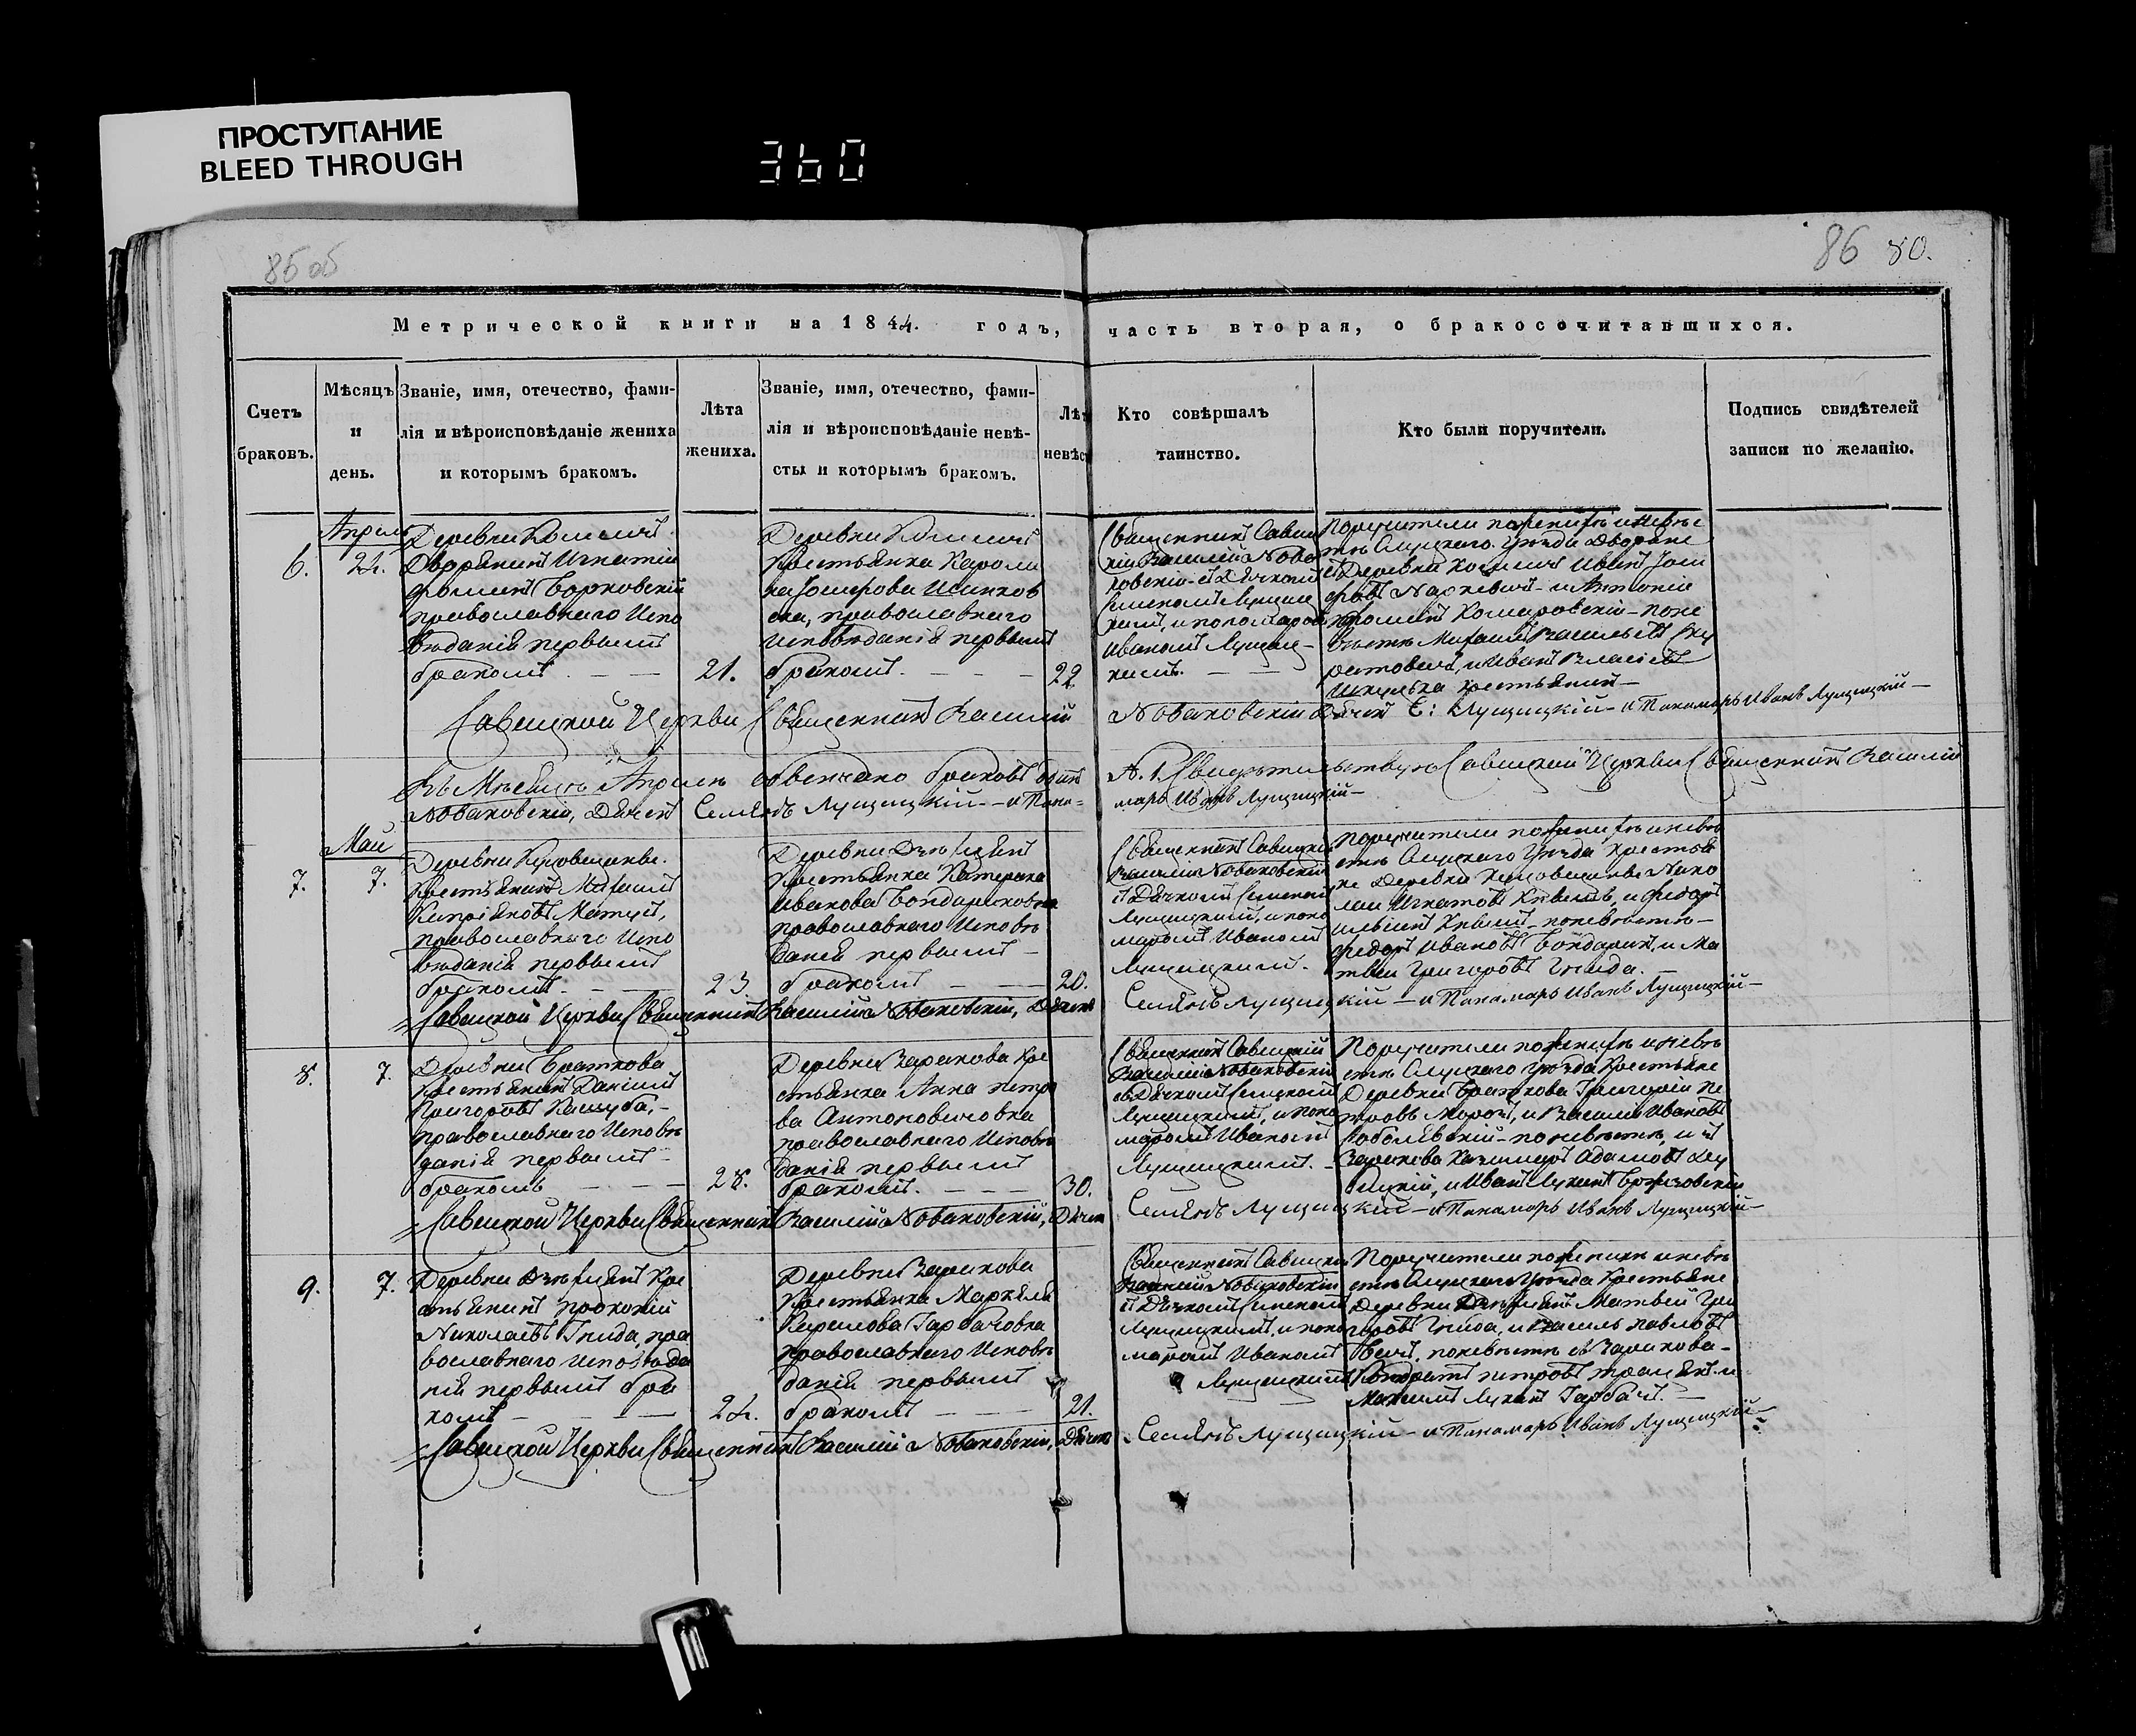 ПРОСТУПАНИЕ
BLEED THROUGH
360
85 об
86 80.
Метрической книги на 1844. годъ, часть вторая, о бракосочитавшихся.
Счетъ
браковъ.
Мѣсяцъ
и
день.
Званіе, имя, отечество, фами-
лія и вѣроисповѣданіе жениха
и которымъ бракомъ.
Лѣта
жениха.
Званіе, имя, отечество, фами-
лія и вѣроисповѣданіе невѣ-
сты и которымъ бракомъ.
Лѣт
невѣс
Кто совѣршалъ
таинство.
Кто были поручители.
Подпись свидѣтелей
записи по желанію.
6.
Апрель
24.
Деревни
Дворянинъ Игнатій
Борковскій
православнаго Испо
вѣданія первымъ
бракомъ
21.
Деревни
Крестьянка Кароли
на
православнаго
Исповѣданія первымъ
бракомъ.
22
Священникъ Савиц
кій Василій Нова
ковскій съ Дьячкомъ
Семеномъ Лущиц
кимъ, и пономаромъ
Иваномъ Лущиц-
кимъ.
Поручители по женихѣ и невѣс
тѣ Слуцкаго Уѣзда Дворяне
Деревни Иванъ
и Антоній
Комаровскій
Михаилъ Васильевъ
и Иванъ Власіевъ
Шкулька Крестьянинъ
Савицкой Церкви Священникъ Василій Новаковскій Дьячекъ С: Лущицкій и Панамарь Иванъ Лущицкій
Въ Мѣсяцѣ Апрелѣ обвенчано браковъ одинъ № 1. Свидѣтельствую Савицкой Церкви Священникъ Василій
Новаковскій, Дьячекъ Семіонъ Лущицкій и Пана-
марь Иванъ Лущицкій
7.
Май
7.
Деревни
Крестьянинъ Михаилъ
Кипріановъ
православнаго Испо
вѣданія первымъ
бракомъ
23
Деревни
Крестьянка Катерина
Иванова Бондариковна
православнаго Исповѣ
данія первымъ
бракомъ
20.
Священникъ Савицкій
Василій Новаковскій
съ Дьячкомъ Семеномъ
Лущицкимъ, и поно
маромъ Иваномъ
Лущицкимъ.
Поручители по женихѣ и невѣ
стѣ Слуцкаго Уѣзда Крестья
не Деревни Нико
лай Игнатовъ и Федоръ
по невѣстѣ
Федоръ Ивановъ Бондарикъ, и Ма
твей Григоровъ Гнида.
Савицкой Церкви Священникъ Василій Новаковскій, Дьячекъ Семіонъ Лущицкій и Панамарь Иванъ Лущицкій
8.
7.
Деревни Браткова
Крестьянинъ Даніилъ
Григоровъ Кашуба,
православнаго Исповѣ
данія первымъ
бракомъ
28.
Деревни Заракова Кре
стьянка Анна Петро
ва Антоновичовна
православнаго Исповѣ
данія первымъ
бракомъ.
30.
Священникъ Савицкій
Василій Новаковскій
съ Дьячкомъ Семеномъ
Лущицкимъ, и поно
маромъ Иваномъ
Лущицкимъ.
Поручители по женихѣ и невѣ
стѣ Слуцкаго Уѣзда Крестьяне
Деревни Браткова Григорій Пе
тровъ Морозъ, и Василій Ивановъ
Соболевскій по невѣстѣ, изъ
Заракова Казимиръ Адамовъ
и Иванъ Лукинъ
Савицкой Церкви Священникъ Василій Новаковскій, Дьячек Семіонъ Лущицкій и Панамарь Иванъ Лущицкій
9.
7.
Деревни Кре
стьянинъ Прокопій
Николаевъ Гнида, пра
вославнаго Исповѣда
нія первымъ бра
комъ
24.
Деревни Заракова
Крестьянка Маркела
Кирилова Гарбачовна
православнаго Исповѣ
данія первымъ
бракомъ
21.
Священникъ Савицкій
Василій Новаковскій
съ Дьячкомъ Семеномъ
Лущицкимъ, и поно
маромъ Иваномъ
Лущицкимъ
Поручители по женихѣ и невѣ
стѣ Слуцкаго Уѣзда Крестьяне
Деревни Матвей Гри
горовъ Гнида, и Василь Павловъ
по невѣстѣ съ Заракова
Кондратъ Петровъ и
Максимъ Лукинъ Гарбачъ.
Савицкой Церкви Священникъ Василій Новаковскій, Дьячек Семіонъ Лущицкій и Панамарь Иванъ Лущицкій